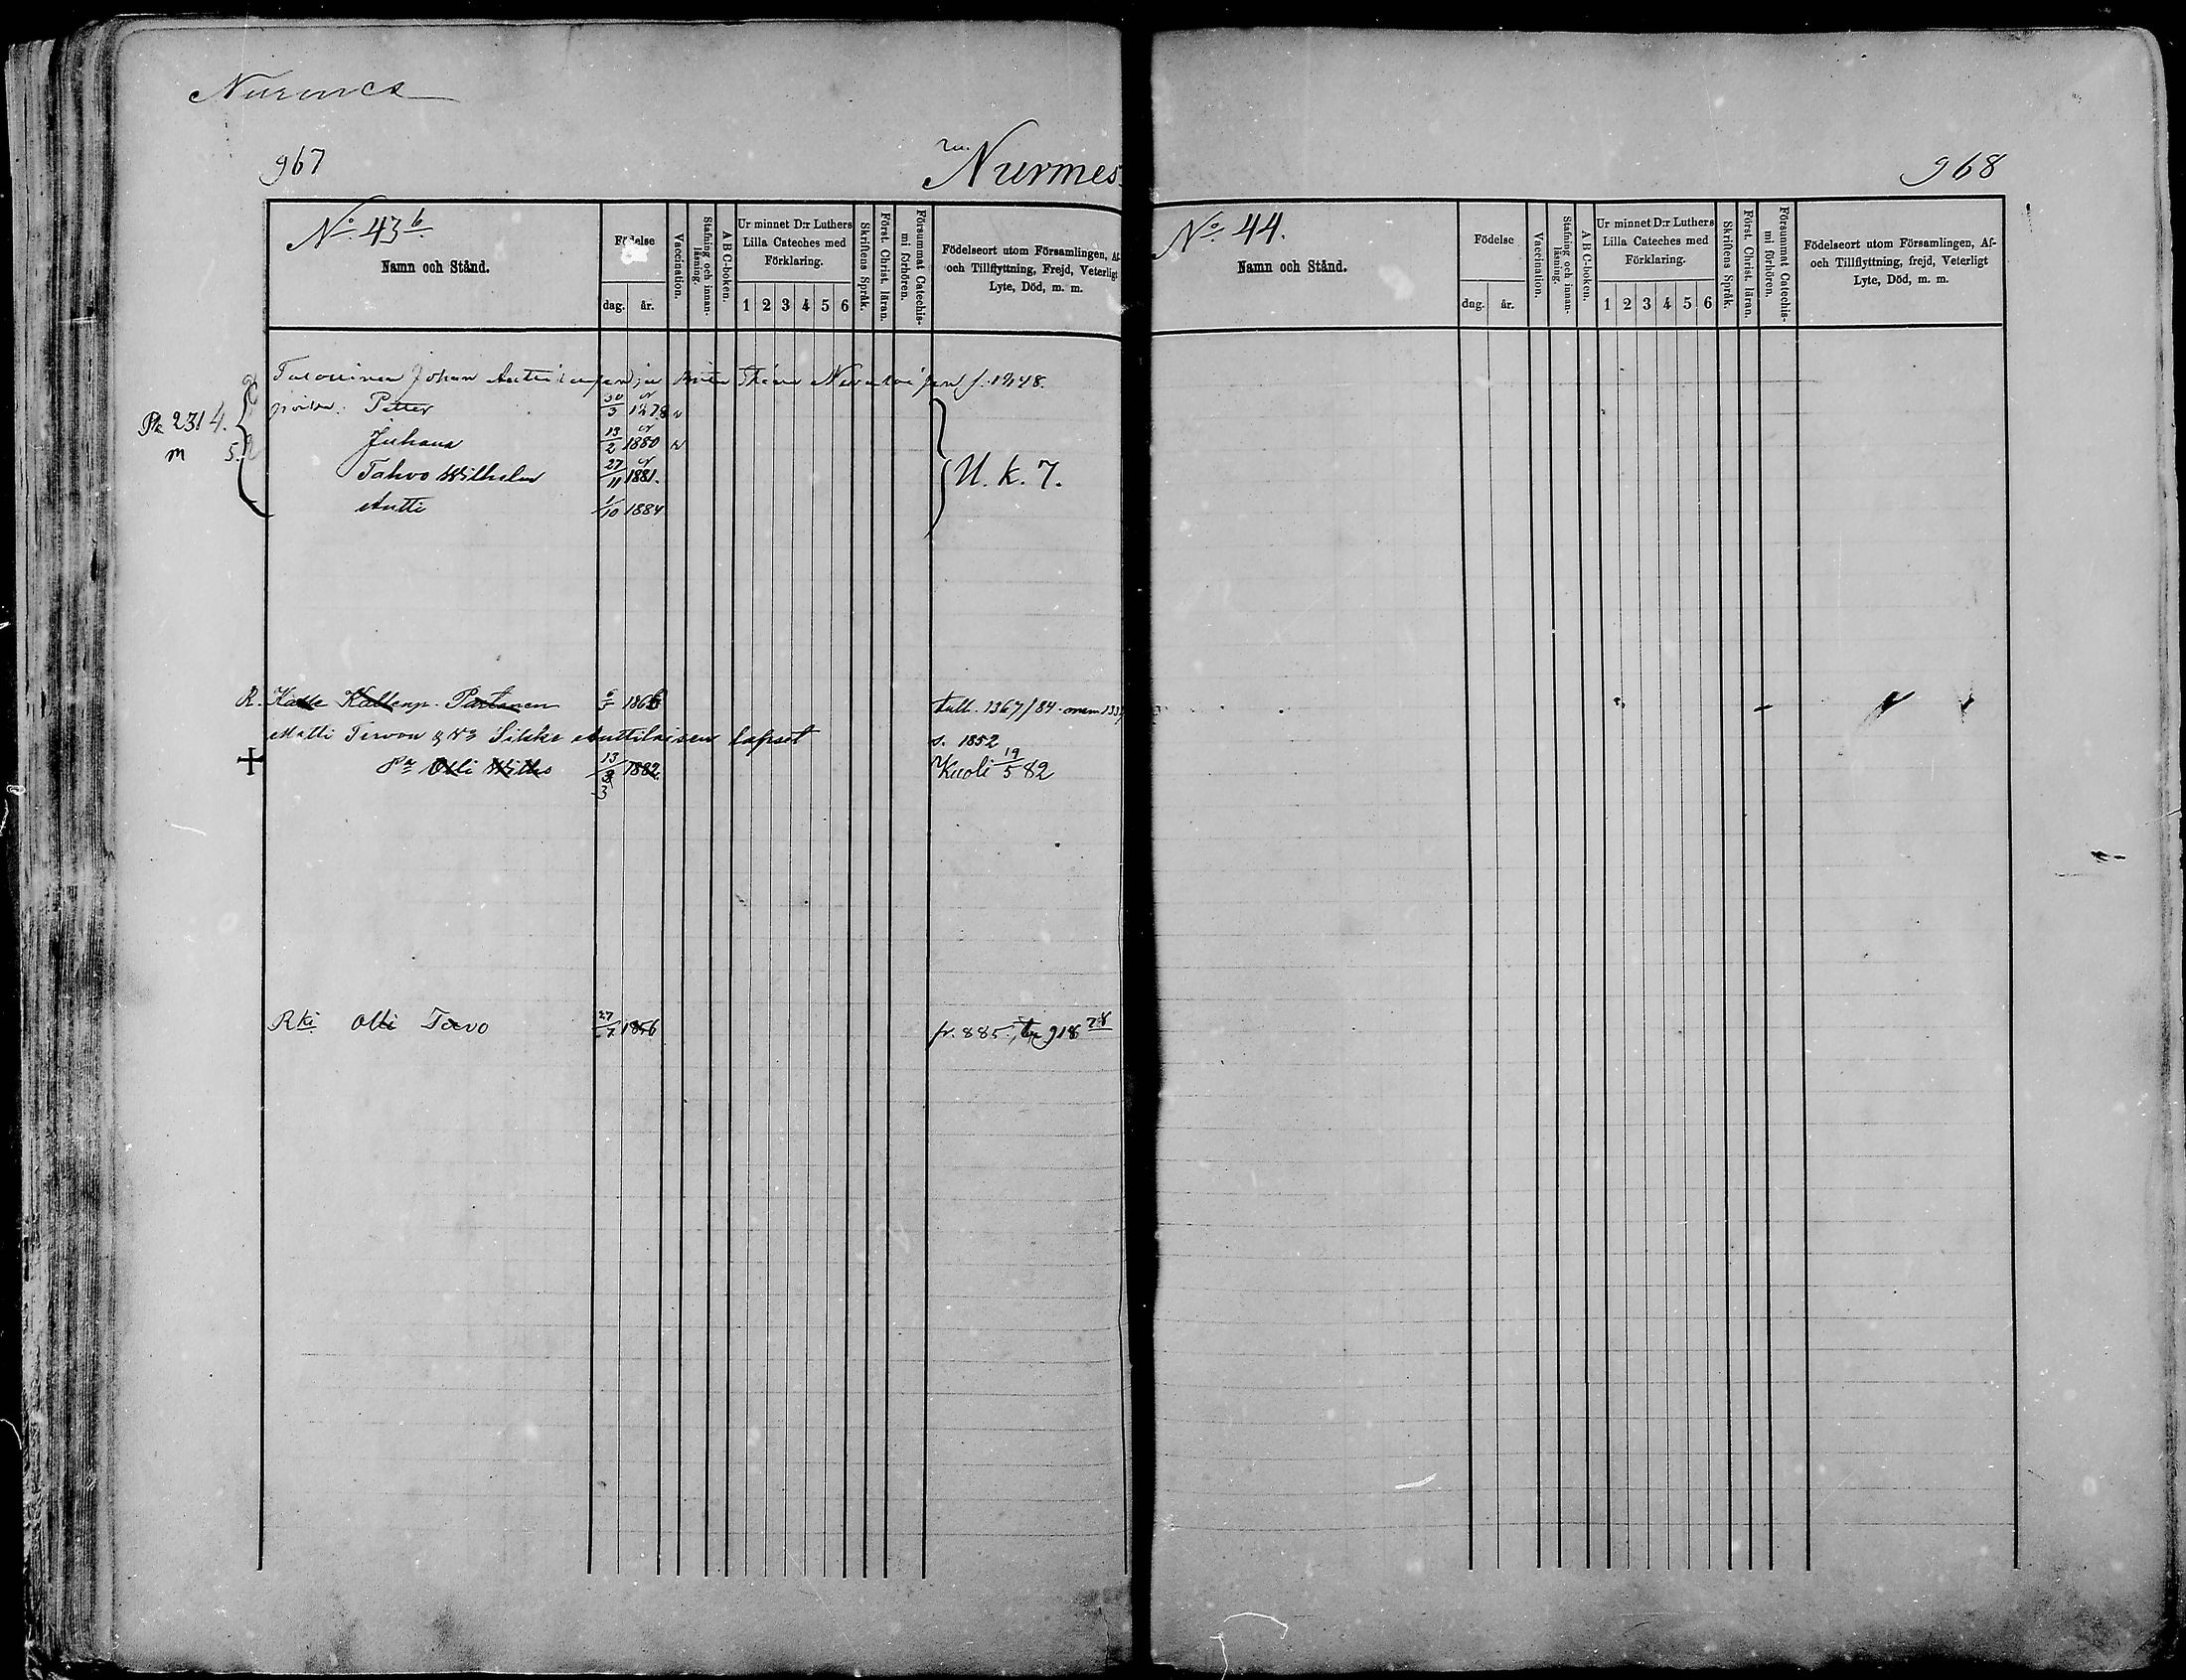 Nurmes
967
Nurmes
No. 43 b.
Namn och Stånd.
Födelse
dag.
år.
Vaccination.
Stafning och innan-
läsning.
A B C-boken.
Ur minnet D:r Luthers
Lilla Cateches med
Förklaring.
1 2 3 4 5 6
Skriftens Språk.
Först. Christ. läran.
Försummat Catechis-
mi förhören.
Födelseort utom Församlingen, Af-
och Tillflyttning, Frejd, Veterligt
Lyte, Död, m. m.
Johan f. 1848.
Petter 30/3 1878 v
Juhana 13/2 1880 v
Tahvo Wilhelm 27/11 1881.
Antti 1/10 1884
Pk 231 4.
m 5.
U. k. 7.
R. Kalle Partanen 186 tull. 1367/84
Matti Tervon & Vo Silkke Anttilaisen lapset s. 1852
Pa Olli Wilho 13/3 1882. Kuoli 19/5 82
Rki Olli Tervo 27 1856 fr. 885. 918 78
968
No. 44.
Namn och Stånd.
Födelse
dag.
år.
Vaccination.
Stafning och innan-
läsning.
A B C-boken.
Ur minnet D:r Luthers
Lilla Cateches med
Förklaring.
1 2 3 4 5 6
Skriftens Språk.
Först. Christ. läran.
Försummat Catechis-
mi förhören.
Födelseort utom Församlingen, Af-
och Tillflyttning, frejd, Veterligt
Lyte, Död, m. m.